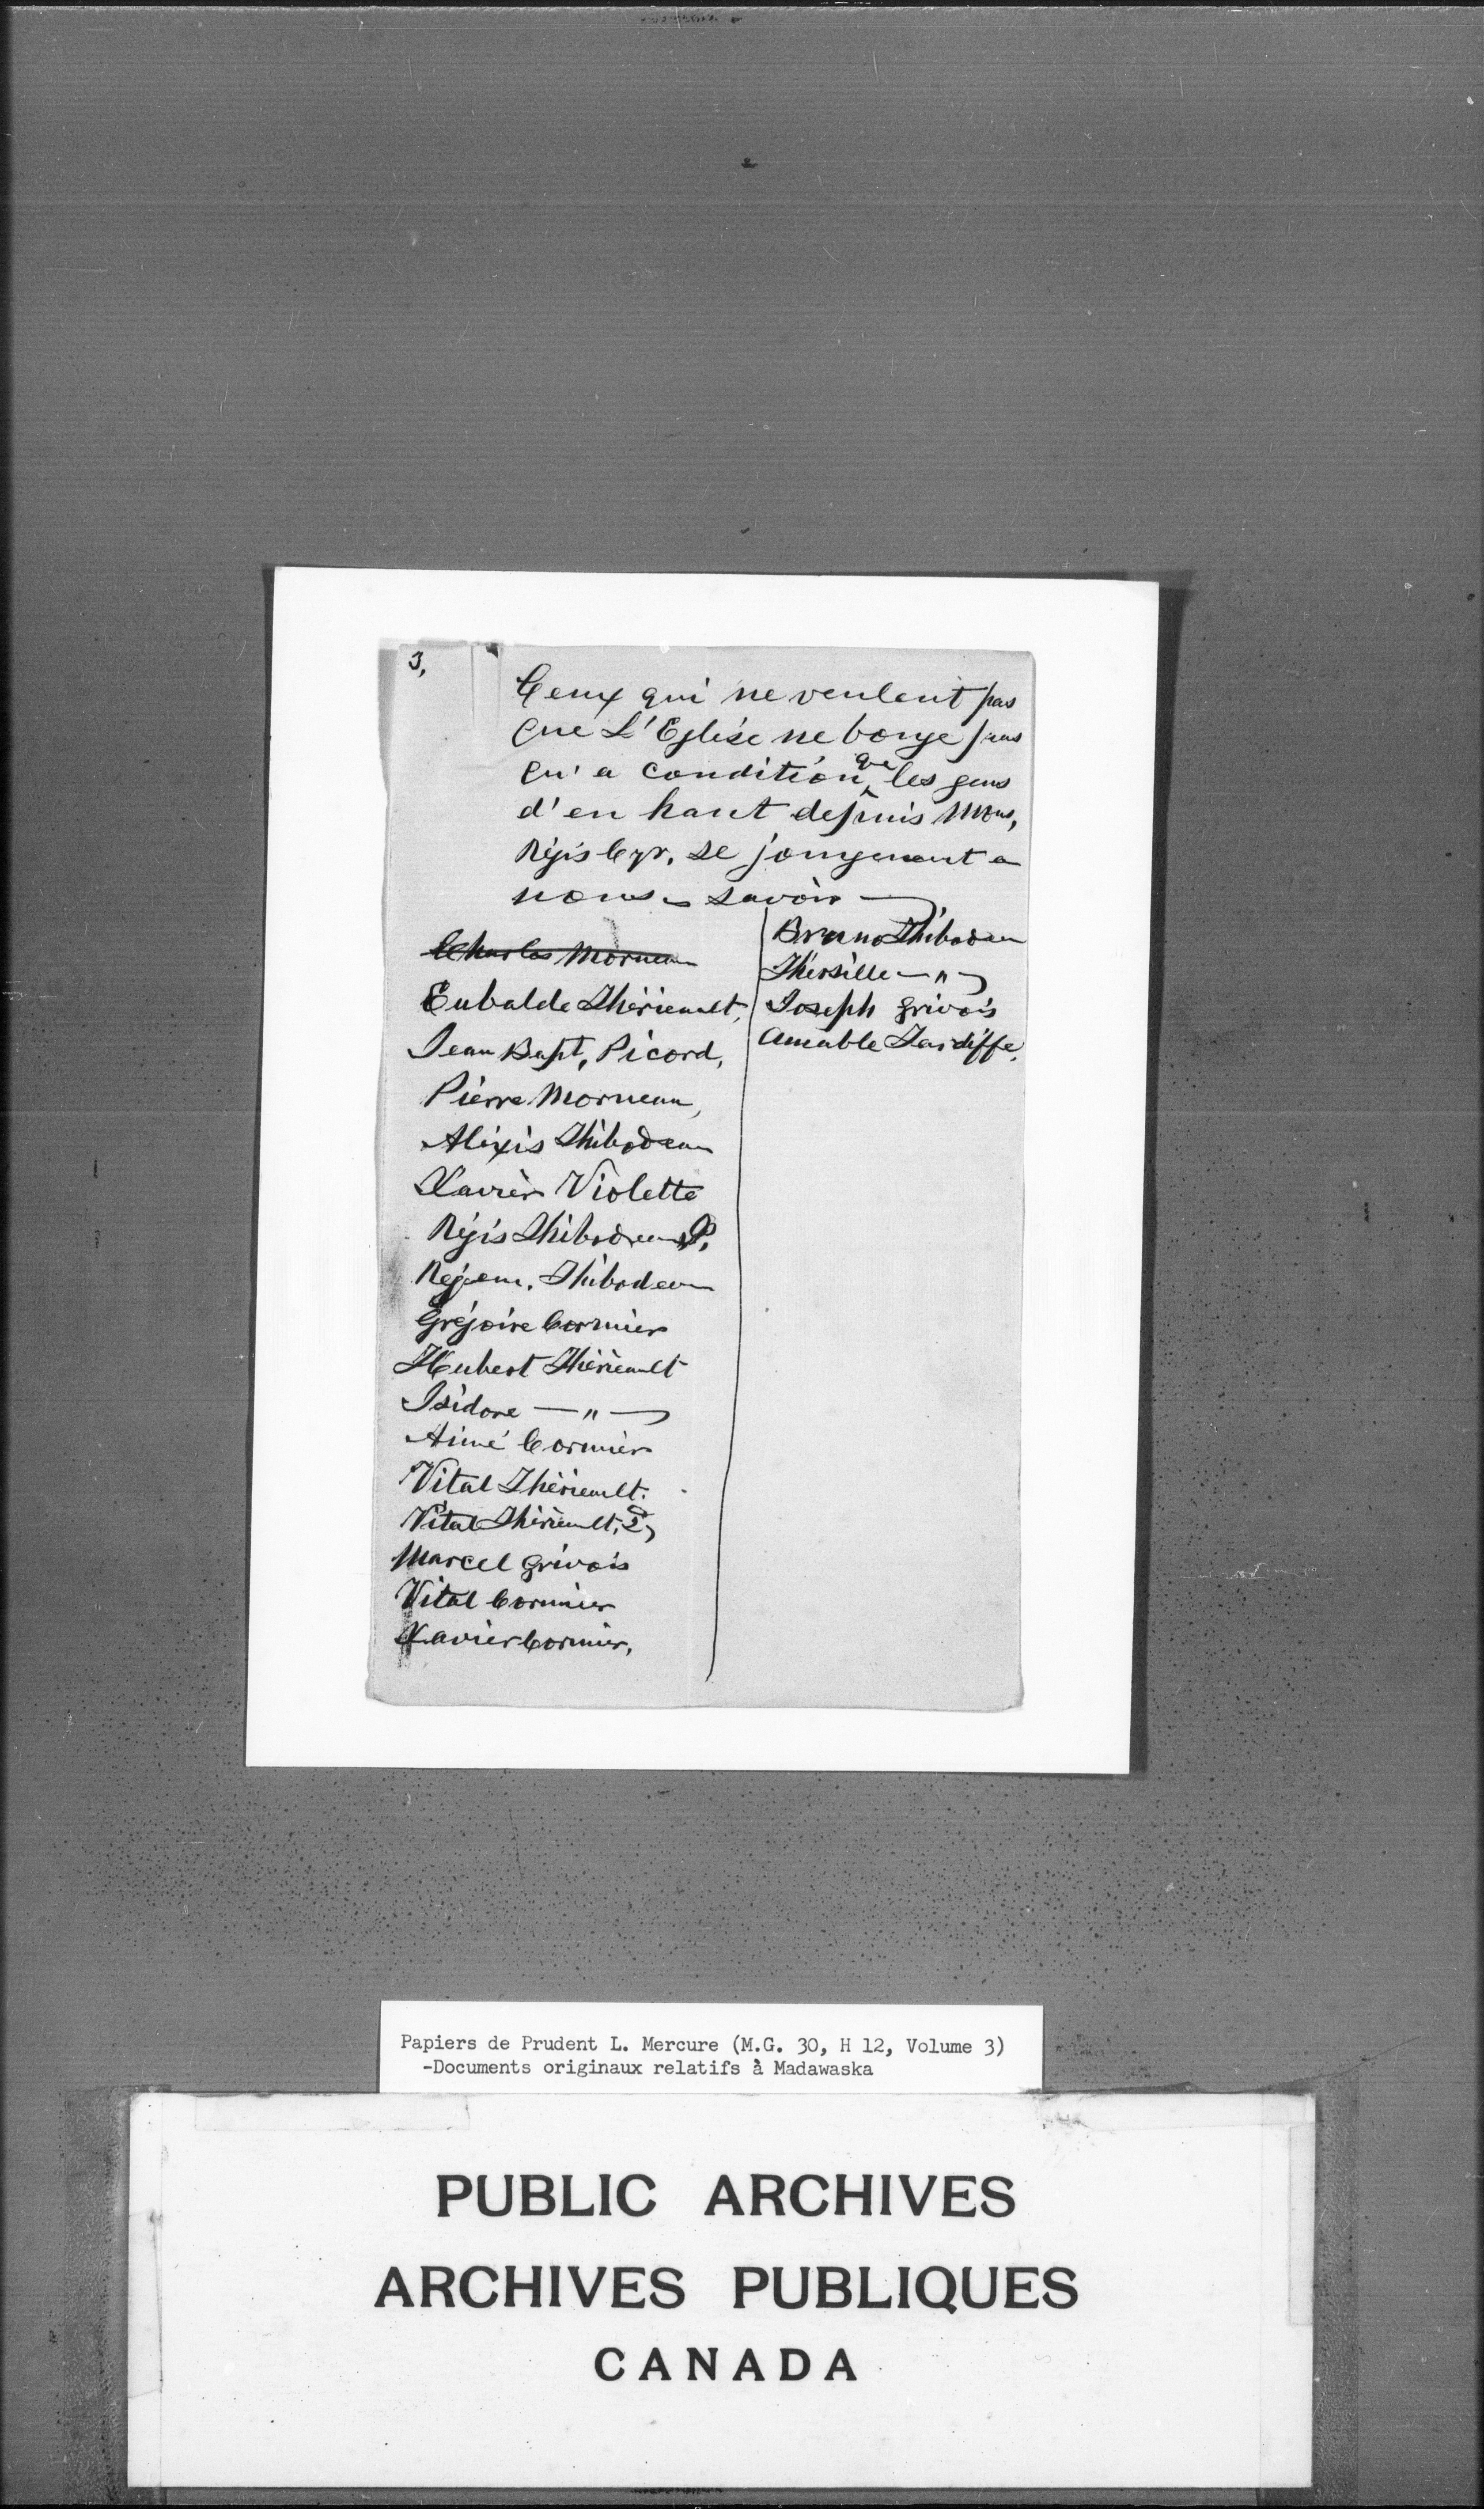 3,
Ceux qui ne veulent pas
que L'Eglise ne bouge pas
qu'a condition que les gens
d'en haut depuis Mons,
Régis Cyr, se joingnent a
nous savoir
Charles Morneau
Eubalde Thérieault,
Jean Bapt, Picord,
Pierre Morneau,
Alixis Thibodeau
Xavier Violette
Régis Thibodeau P,
Thibodeau
Grégoire Cormier
Hubert Thérieault
Isidore — " —
Aimé Cormier
Vital Thérieault.
Vital Thérieault, 2,
Marcel Grivois
Vital Cormier
Xavier Cormier,
Bruno Thibodeau
Thersille — " —
Joseph Grivois
Amable Tardiffe.
Papiers de Prudent L. Mercure (M.G. 30, H 12, Volume 3)
-Documents originaux relatifs à Madawaska
PUBLIC ARCHIVES
ARCHIVES PUBLIQUES
CANADA